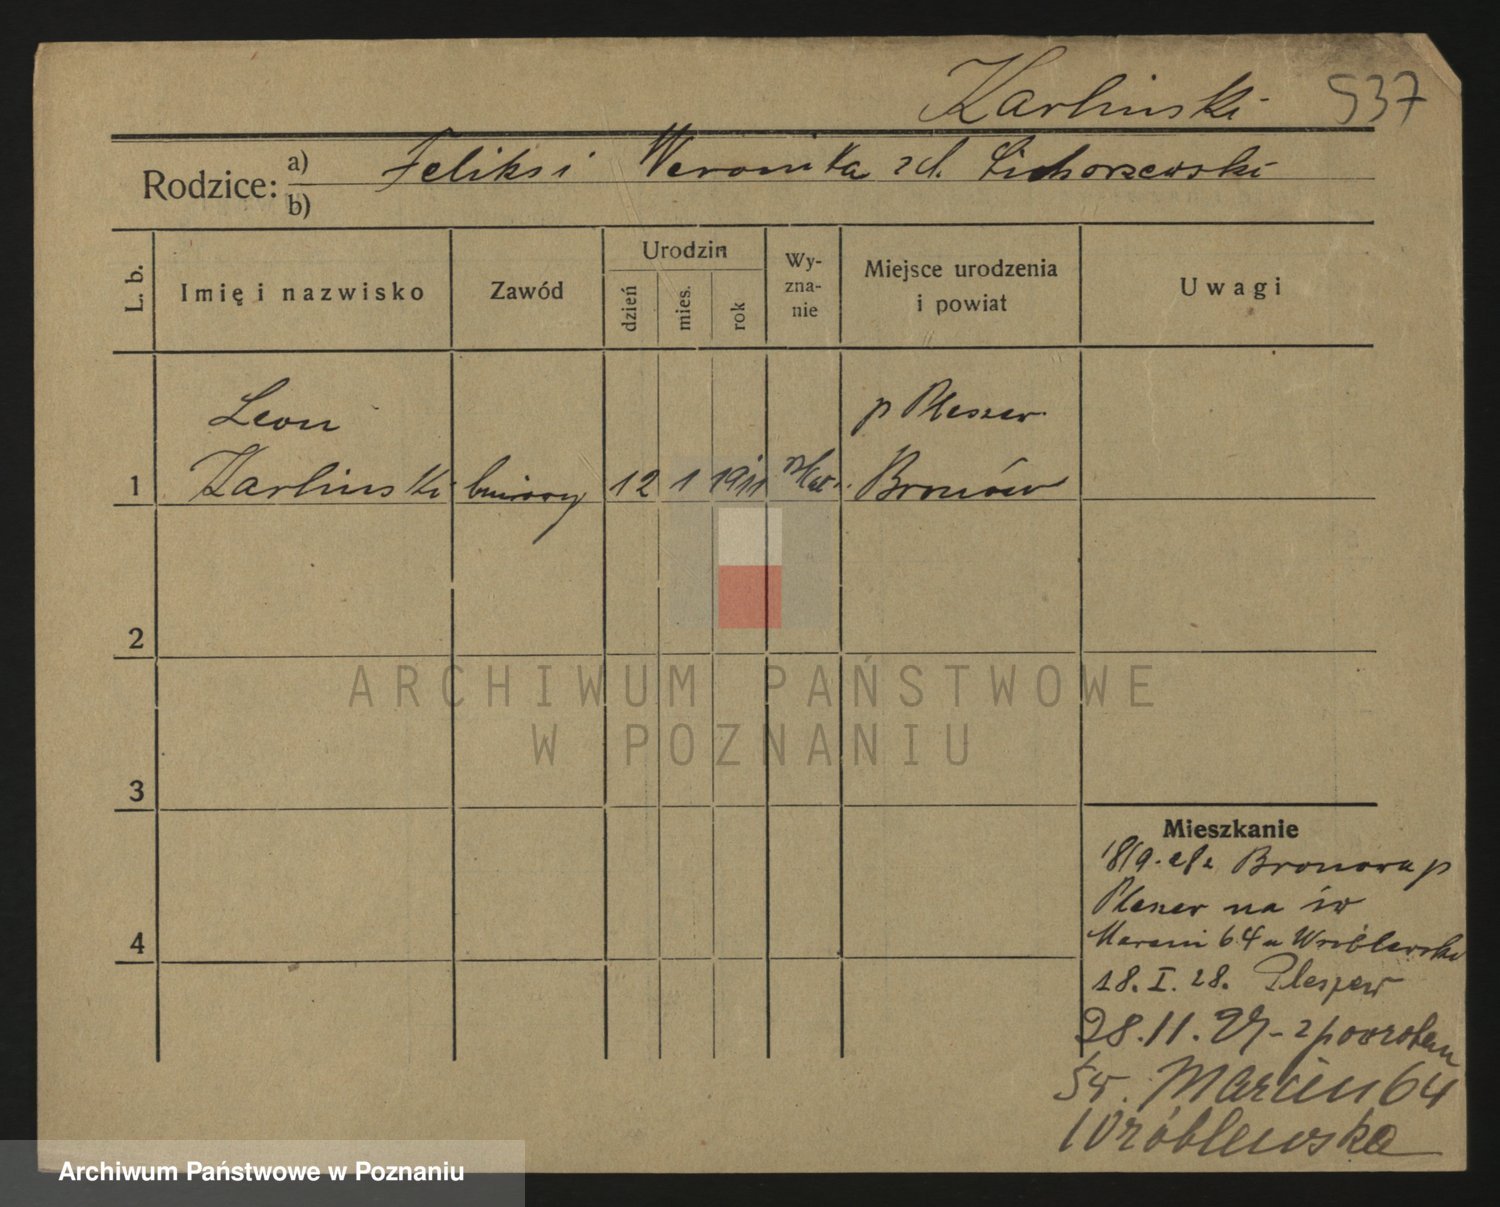 Karliński 937
Rodzice: a) Feliks i Weronika zd. Cichorzewski
b)
L. b. Imię i nazwisko Zawód Urodzin dzień mies. rok Wyznanie Miejsce urodzenia i powiat Uwagi
Leon p Pleszew
1 Karliński biurowy 12 1 1911 rzkat. Bronów
2
ARCHIWUM PAŃSTWOWE
W POZNANIU
3
Mieszkanie
18/9. z Bronowa p
Pleszew na św
4
Marcin 64 u Wróblewska
18. I. 28. Pleszew
28. 11. z powrotem
Św. Marcin 64
Wróblewska
Archiwum Państwowe w Poznaniu